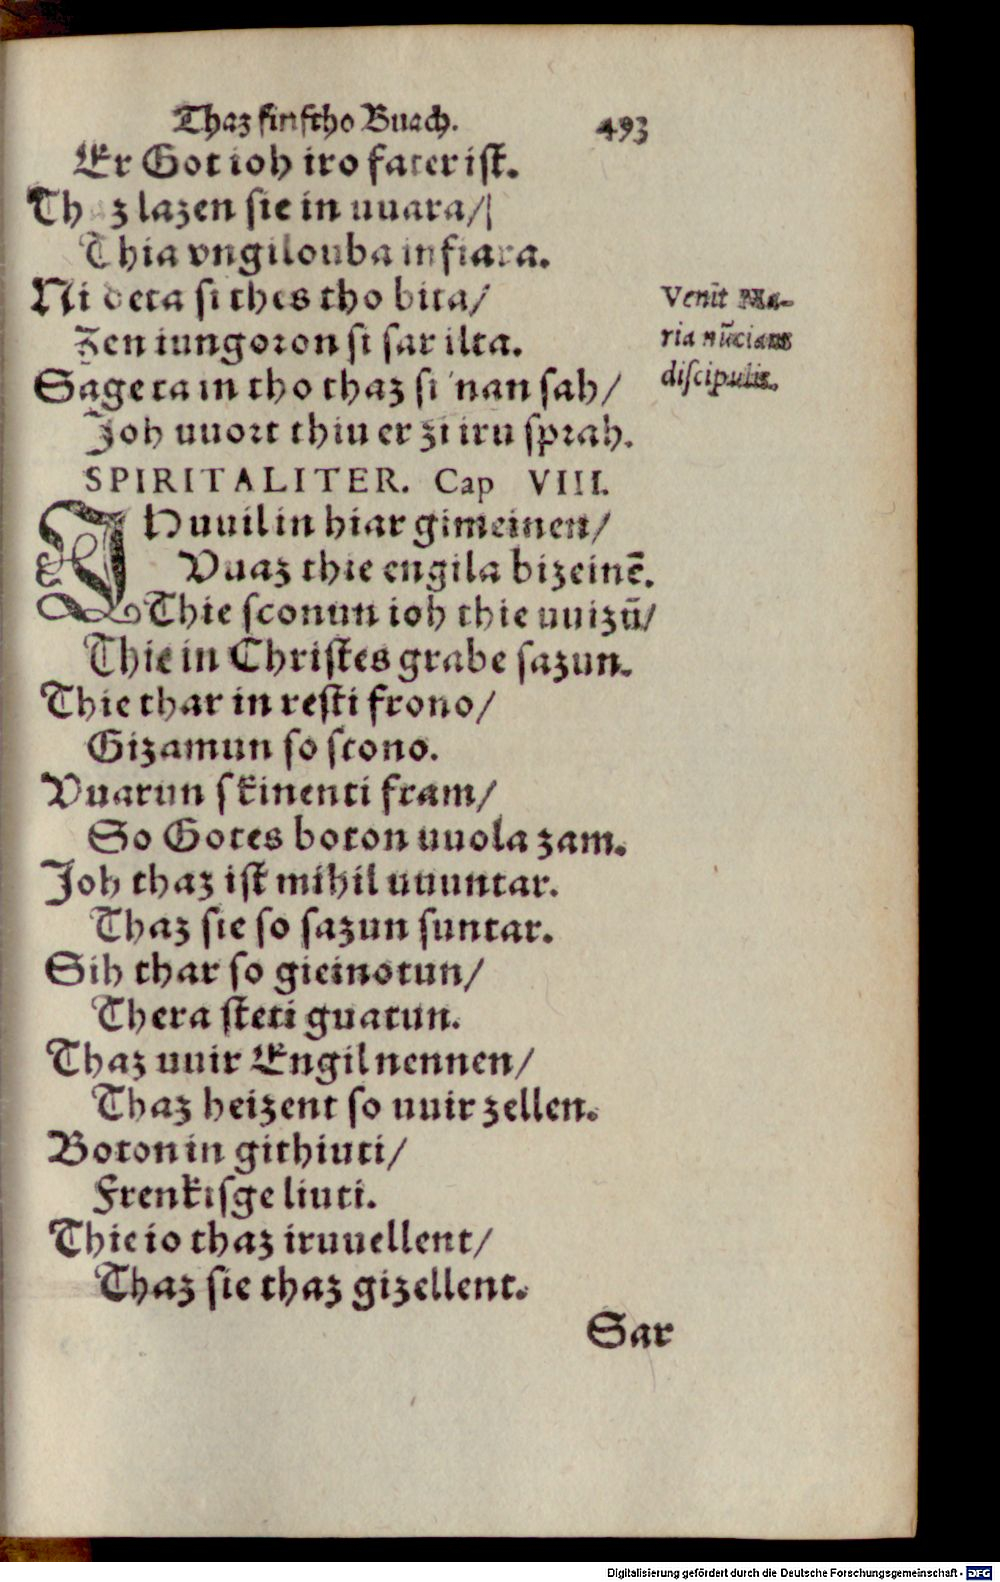 Thaz finftho Buach. 493
Er Got ioh iro fater ist.
Thaz lazen sie in uuara/
Thia vngilouba in fiara.
Ni deta si thes tho bita/
Zen iungoron si sar ilta.
Sageta in tho thaz si nan sah/
Joh uuort thiu er zi iru sprah.
Venit̃ Ma-
ria nũcians
discipulis.
SPIRITALITER. Cap VIII.
IHuuil in hiar gimeinen/
Vuaz thie engila bizeinẽ.
Thie sconun ioh thie uuizũ/
Thie in Christes grabe sazun.
Thie thar in resti frono/
Gizamun so scono.
Vuarun skinenti fram/
So Gotes boton uuola zam.
Joh thaz ist mihil uuuntar.
Thaz sie so sazun suntar.
Sih thar so gieinotun/
Thera steti guatun.
Thaz uuir Engil nennen/
Thaz heizent so uuir zellen.
Boton in githiuti/
Frenkisge liuti.
Thie io thaz iruuellent/
Thaz sie thaz gizellent.
Sar
Digitalisierung gefördert durch die Deutsche Forschungsgemeinschaft - DFG